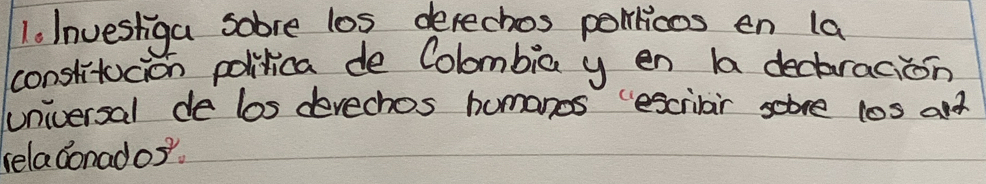 1. Investiga sobre los derechos politicos en la
constitución politica de Colombia y en la declaración
universal de los derechos humanos "escribir sobre los art
relacionados".